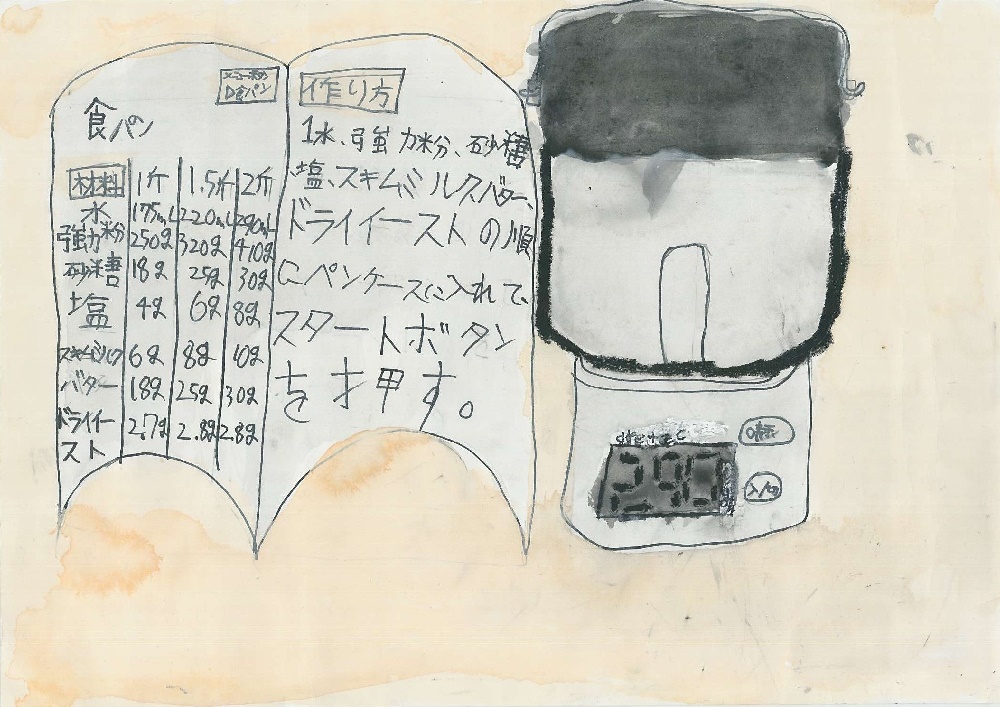 メニューボタン
D食パン
食パン
材料 1斤 1.5斤 2斤
水 175mL 220mL 290mL
強力粉 250g 320g 410g
砂糖 18g 25g 30g
塩 4g 6g 8g
スキムミルク 6g 8g 10g
バター 18g 25g 30g
ドライイースト 2.7g 2.8g 2.8g
作り方
1水、強力粉、砂糖
塩、スキムミルク、バター、
ドライイーストの順
にパンケースに入れて、
スタートボタン
を押す。
0表示
290
入/切